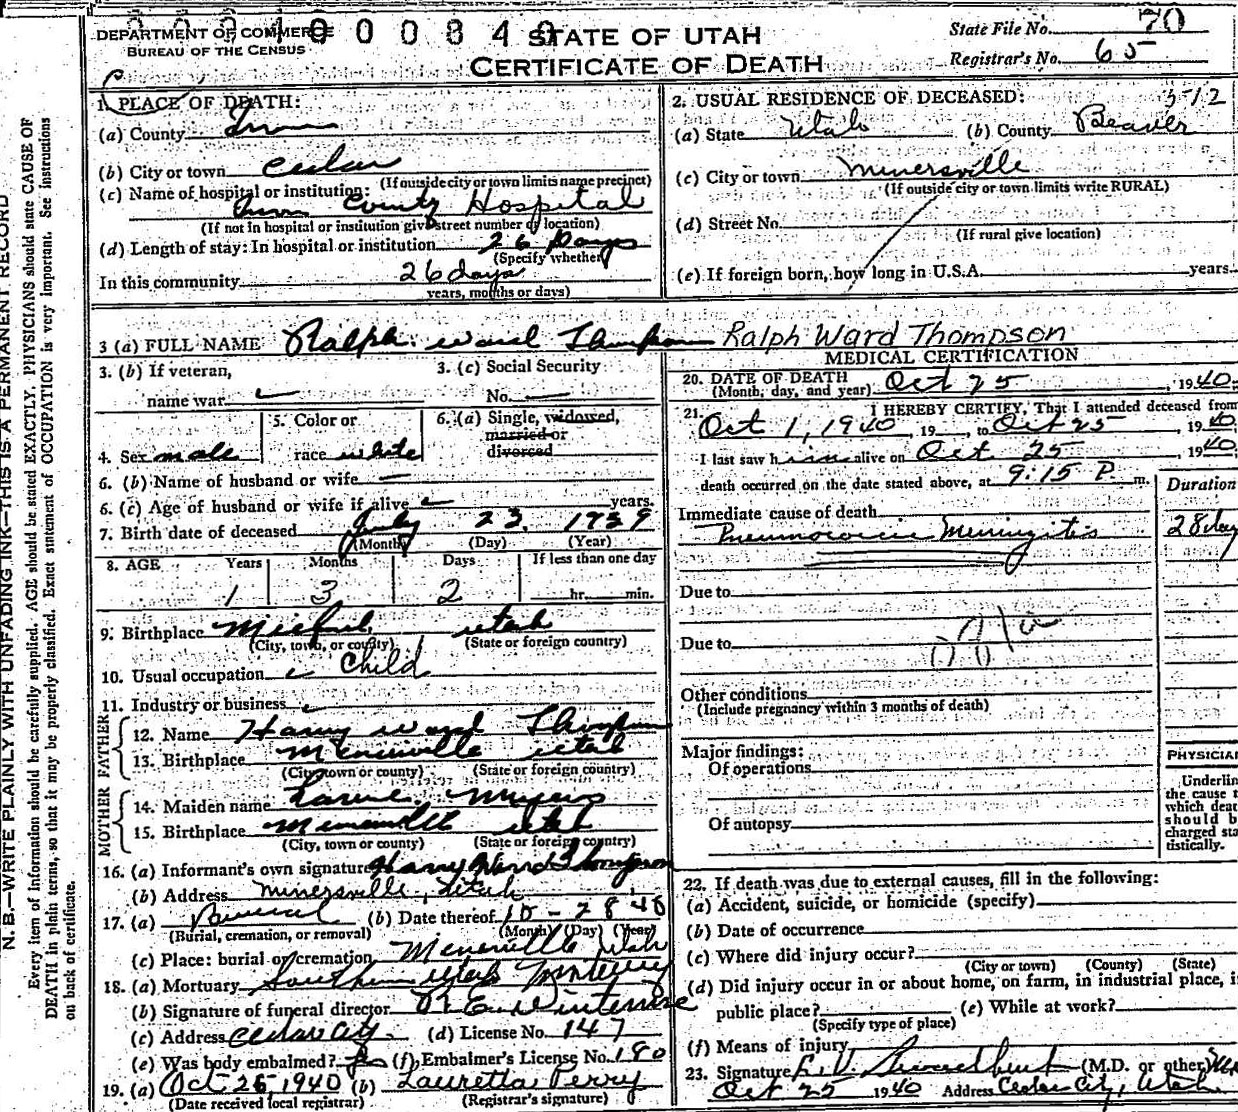 DEPARTMENT OF COMMERCE
BUREAU OF THE CENSUS
STATE OF UTAH
CERTIFICATE OF DEATH
State File No. 70
Registrar's No. 65
1. PLACE OF DEATH:
(a) County Iron
(b) City or town Cedar
(If outside city or town limits name precinct)
(c) Name of hospital or institution:
Iron County Hospital
(If not in hospital or institution give street number or location)
(d) Length of stay: In hospital or institution 26 Days
(Specify whether
In this community 26 days
years, months or days)
2. USUAL RESIDENCE OF DECEASED:
(a) State Utah (b) County Beaver
(c) City or town Minersville
(If outside city or town limits write RURAL)
(d) Street No.
(If rural give location)
(e) If foreign born, how long in U.S.A. years.
3 (a) FULL NAME Ralph Ward Thompson Ralph Ward Thompson
3. (b) If veteran,
name war
3. (c) Social Security
No.
4. Sex male
5. Color or
race white
6. (a) Single, widowed,
married or
divorced
6. (b) Name of husband or wife
6. (c) Age of husband or wife if alive years.
7. Birth date of deceased July 23, 1939
(Month) (Day) (Year)
8. AGE Years Months Days If less than one day
1 3 2 hr. min.
9. Birthplace Milford, Utah
(City, town, or county) (State or foreign country)
10. Usual occupation Child
11. Industry or business
FATHER
12. Name Harry Ward Thompson
13. Birthplace Minersville Utah
(City, town or county) (State or foreign country)
MOTHER
14. Maiden name Myers
15. Birthplace Minersville Utah
(City, town or county) (State or foreign country)
16. (a) Informant's own signature Harry Ward Thompson
(b) Address Minersville, Utah
17. (a) Burial (b) Date thereof 10-28 40
(Burial, cremation, or removal) (Month) (Day) (Year)
(c) Place: burial or cremation Minersville Utah
18. (a) Mortuary Southern Utah Mortuary
(b) Signature of funeral director
(c) Address Cedar City (d) License No. 147
(e) Was body embalmed? Yes (f) Embalmer's License No. 180
19. (a) Oct 26, 1940 (b) Lauretta Perry
(Date received local registrar) (Registrar's signature)
MEDICAL CERTIFICATION
20. DATE OF DEATH
(Month, day, and year) Oct 25, 1940
21. I HEREBY CERTIFY, That I attended deceased from
Oct 1, 1940, 19 , to Oct 25, 1940
I last saw him alive on Oct 25, 1940
death occurred on the date stated above, at 9:15 P. m.
Duration
Immediate cause of death
Meningitis 28 day
Due to
Due to
Other conditions
(Include pregnancy within 3 months of death)
Major findings:
Of operations
Of autopsy
PHYSICIAN
Underline
the cause t
which deat
should b
charged sta
tistically.
22. If death was due to external causes, fill in the following:
(a) Accident, suicide, or homicide (specify)
(b) Date of occurrence
(c) Where did injury occur?
(City or town) (County) (State)
(d) Did injury occur in or about home, on farm, in industrial place, i
public place? (e) While at work?
(Specify type of place)
(f) Means of injury
23. Signature (M.D. or other)
Oct 25 1940 Address Cedar City, Utah
N. B.—WRITE PLAINLY WITH UNFADING INK—THIS IS A PERMANENT RECORD
Every item of information should be carefully supplied. AGE should be stated EXACTLY. PHYSICIANS should state CAUSE OF
DEATH in plain terms, so that it may be properly classified. Exact statement of OCCUPATION is very important. See instructions
on back of certificate.